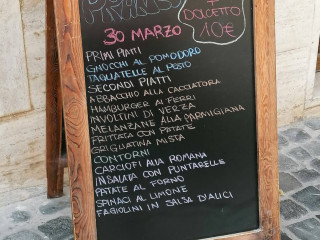 PRANZO
+
DOLCETTO
10€
30 MARZO
PRIMI PIATI
GNOCCHI AL POMODORO
TAGLIATELLE AL PESTO
SECONDI PIATTI
ABBACCHIO ALLA CACCIATORA
HAMBURGER AI FERRI
INVOLTINI DI VERZA
MELANZANE ALLA PARMIGIANA
FRITTATA CON PATATE
GRIGLIATINA MISTA
CONTORNI
CARCIOFI ALLA ROMANA
INSALATA CON PUNTARELLE
PATATE AL FORNO
SPINACI AL LIMONE
FAGIOLINI IN SALSA D'ALICI